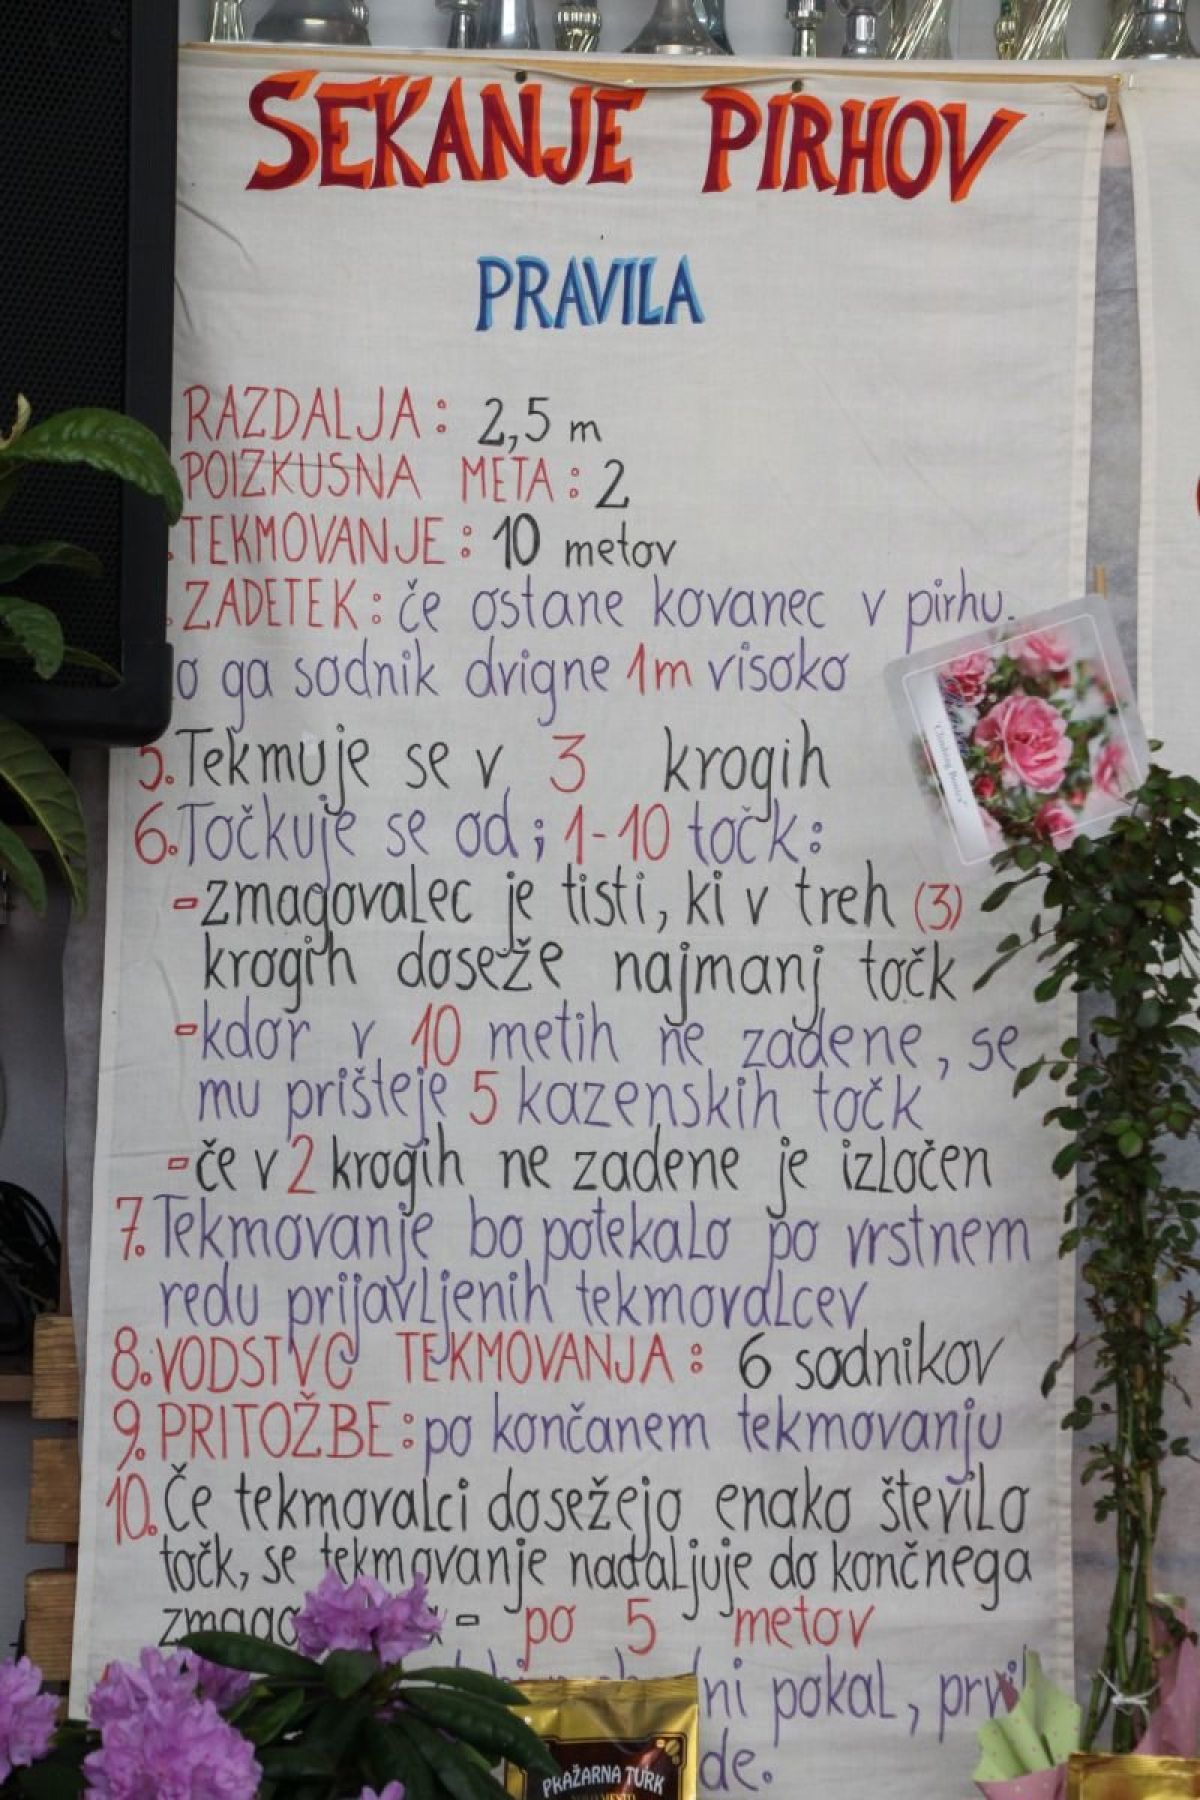 SEKANJE PIRHOV
PRAVILA
RAZDALJA: 2,5 m
POIZKUSNA META: 2
TEKMOVANJE: 10 metov
ZADETEK: če ostane kovanec v pirhu.
ga sodnik dvigne 1m visoko
5. Tekmuje se v 3 krogih
6. Točkuje se od; 1-10 točk:
- zmagovalec je tisti, ki v treh (3)
krogih doseže najmanj točk
- kdor v 10 metih ne zadene, se
mu prišteje 5 kazenskih točk
- če v 2 krogih ne zadene je izločen
7. Tekmovanje bo potekalo po vrstnem
redu prijavljenih tekmovalcev
8. VODSTVO TEKMOVANJA: 6 sodnikov
9. PRITOŽBE: po končanem tekmovanju
10. Če tekmovalci dosežejo enako število
točk, se tekmovanje nadaljuje do končnega
- po 5 metov
pokal,
PRAŽARNA TURK